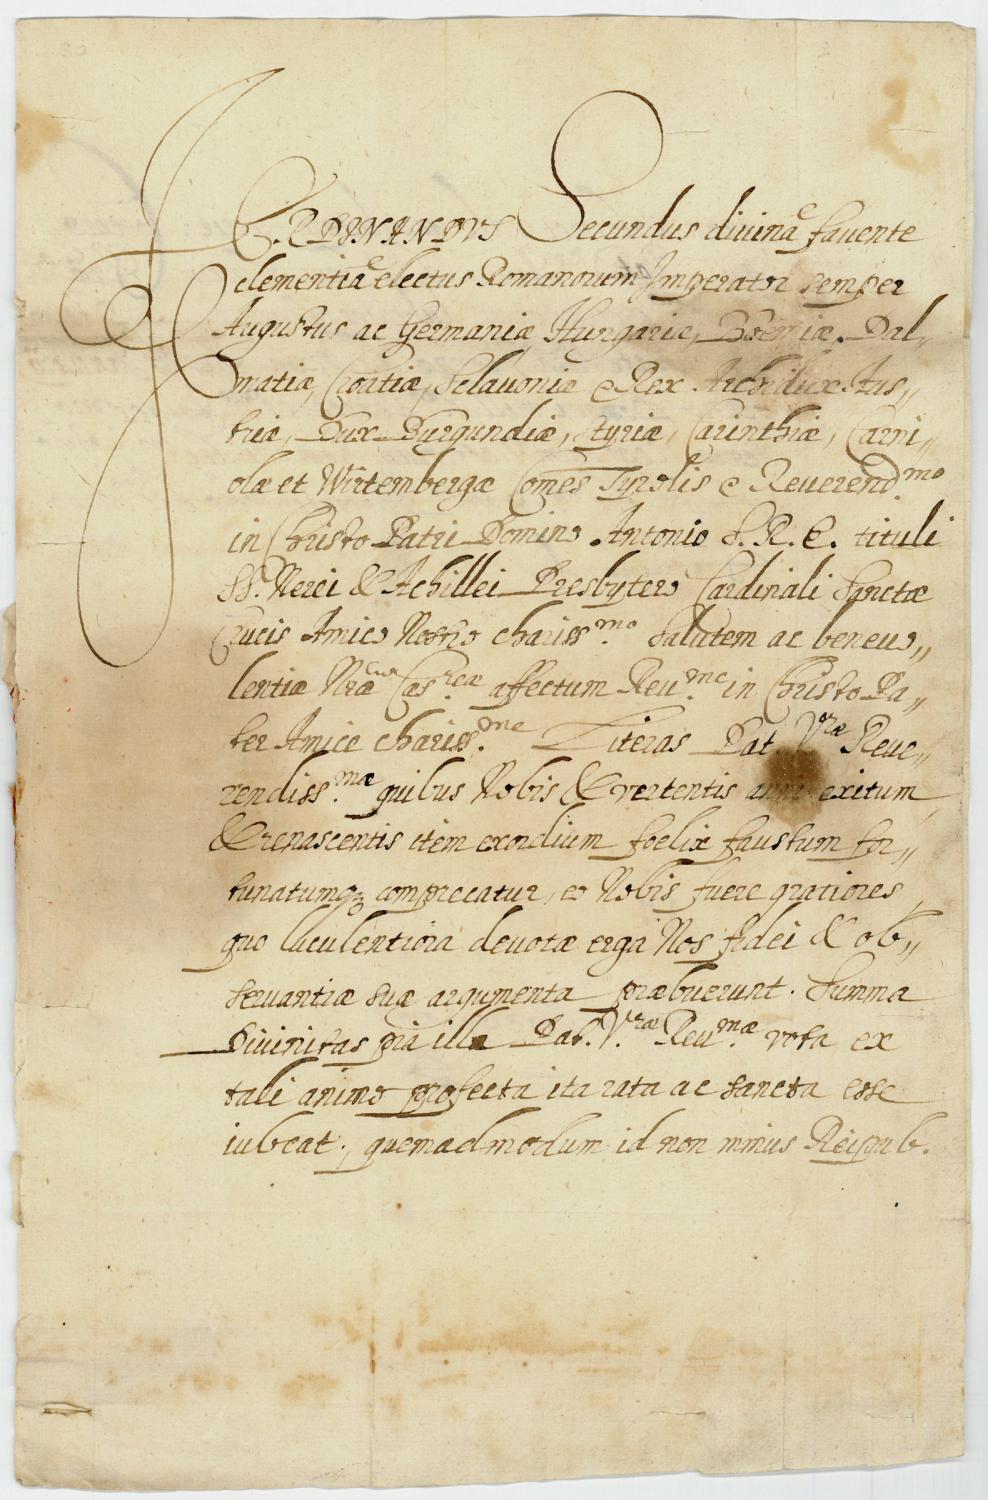 FERDINANDVS Secundus diuina fauente
clementia electus Romanorum Imperator semper
Augustus ac Germaniæ, Hungariæ, Boemiæ, Dal„
matiæ, Croatiæ, Sclauoniæ &c Rex Archidux Aus„
triæ, Dux Burgundiæ, Styriæ, Carinthiæ, Carni„
olæ et Wirtembergæ Comes Tyrolis &c Reuerend.mo
in Christo Patri Domino Antonio S. R. E. tituli
SS. Nerei & Achillei Presbytero Cardinali Sanctæ
Crucis Amico Nostro chariss.mo Salutem ac beneuo„
lentiæ Nræ Cæs.reæ affectum Reu.me in Christo Pa„
ter Amice chariss.me Literas Pat. V.ræ Reue„
rendiss.mæ quibus Nobis & vertentis anni exitum
& renascentis item exordium foelix faustum for„
tunatumq; comprecatur, eo Nobis fuere gratiores,
quo luculentiora deuotæ erga Nos fidei & ob„
seruantiæ suæ argumenta præbuerunt. Summa
Diuinitas pia illa Pat. V.ræ Reu.mæ vota ex
tali animo profecta ita rata ac sancta esse
iubeat, quemadmodum id non minus Reipub.